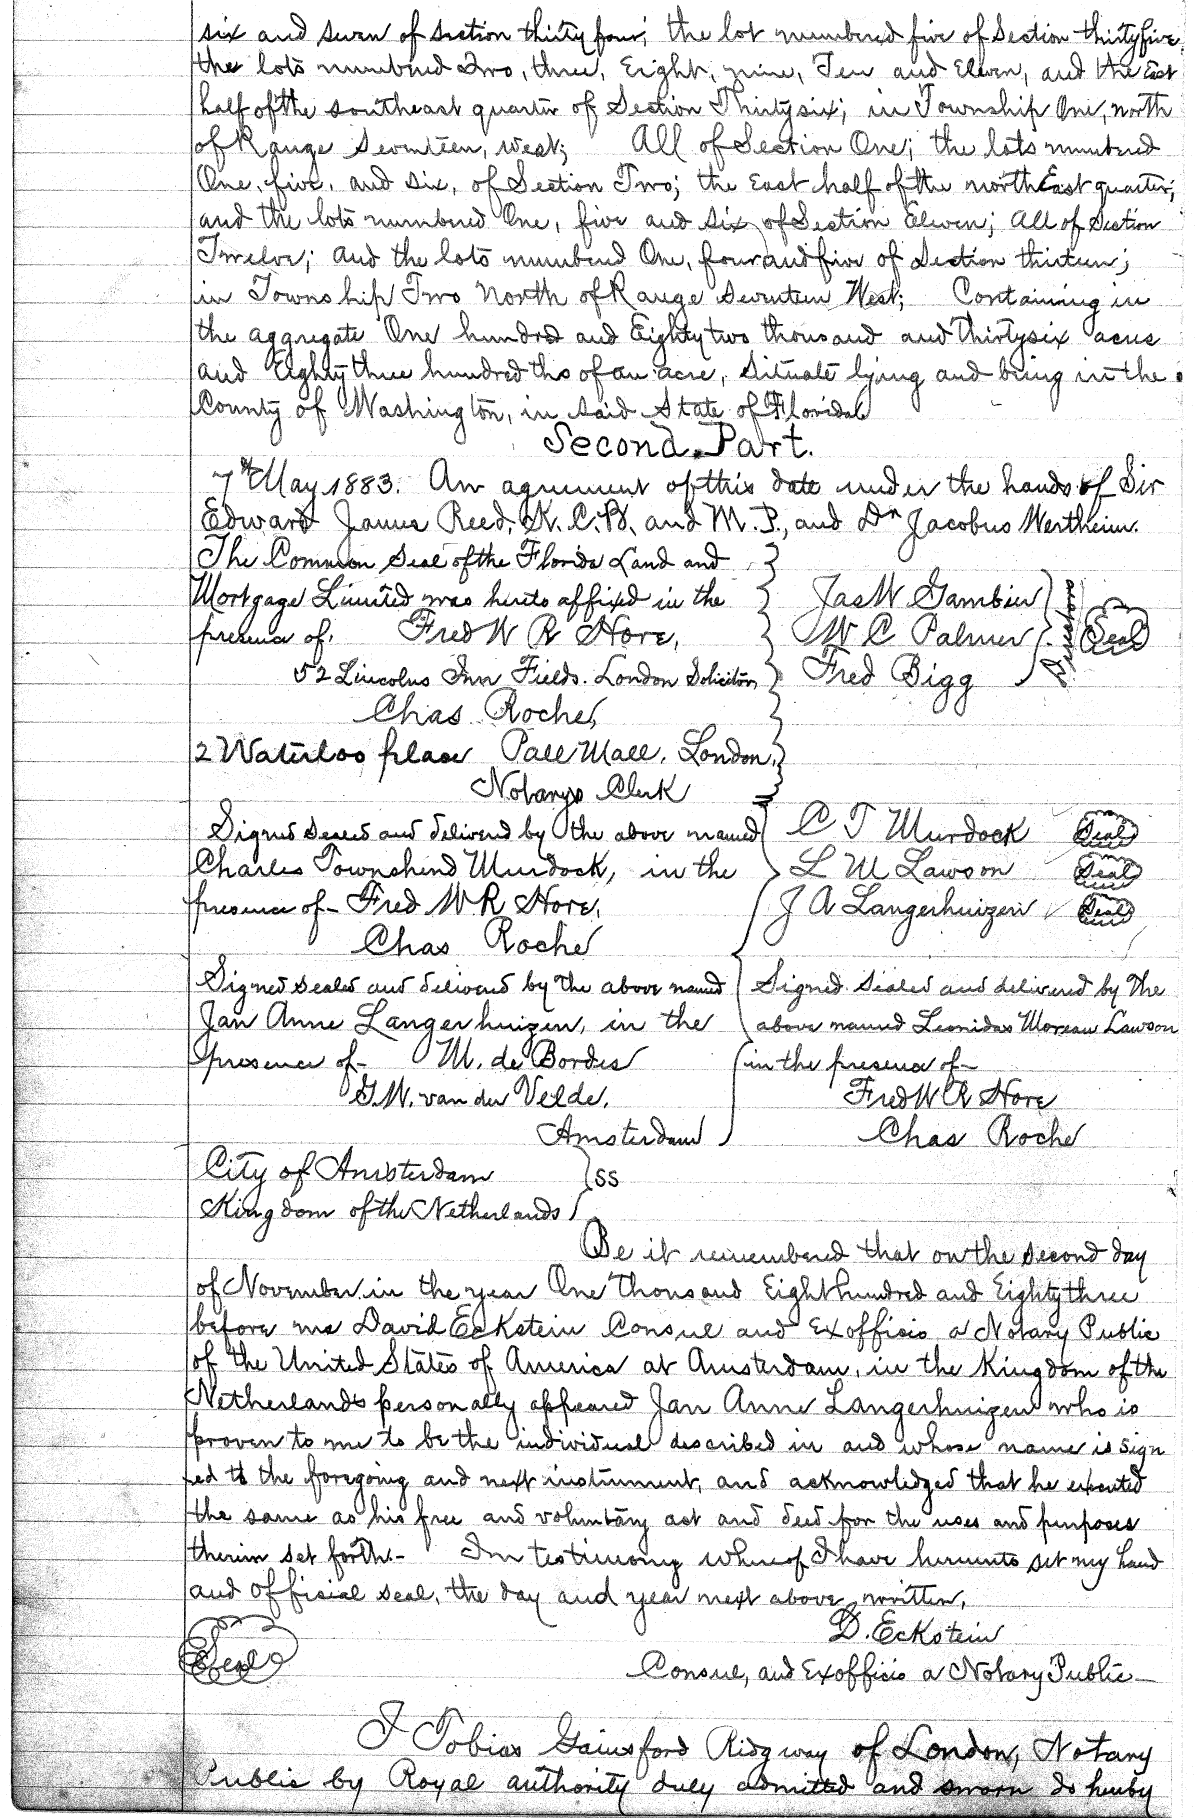 six and seven of section thirty four; the lot numbered five of Section thirtyfive,
the lots numbered Two, three, Eight, nine, Ten and Eleven, and the East
half of the southeast quarter of Section Thirtysix; in Township One, north
of Range Seventeen, West; All of Section One; the lots numbered
One, five, and six, of Section Two; the East half of the northEast quarter;
and the lots numbered One, five and six of Section Eleven; all of Section
Twelve; and the lots numbered One, four and five of Section thirteen;
in Township Two North of Range Seventeen West; Containing in
the aggregate One hundred and Eighty two thousand and Thirtysix acres
and Eighty three hundredths of an acre, situate lying and being in the
County of Washington, in said State of Florida
Second Part.
7th May 1883. An agreement of this date under the hands of Sir
Edward James Reed, K. C. B. and M. P., and Dr Jacobus Wertheim.
The Common Seal of the Florida Land and
Mortgage Limited was hereto affixed in the
presence of. Fred W R Hore,
52 Lincolns Inn Fields. London Solicitor
Chas Roche,
2 Waterloo place Pall Mall, London,
Notarys Clerk
Jas W Gambier
W C Palmer
Fred Bigg
Directors
Seal
Signed sealed and delivered by the above named
Charles Townshend Murdock, in the
presence of- Fred W R Hore,
Chas Roche
C T Murdock Seal
L M Lawson Seal
J A Langerhuizen Seal
Signed sealed and delivered by the above named
Jan Anne Langerhuizen, in the
presence of- M. de Bordes
G.W. van der Velde,
Amsterdam
Signed Sealed and delivered by the
above named Leonidas Moreau Lawson
in the presence of-
Fred W R Hore
Chas Roche
City of Amsterdam
Kingdom of the Netherlands
SS
Be it remembered that on the second day
of November in the year One Thousand Eight hundred and Eighty three
before me David Eckstein Consul and Exofficio a Notary Public
of the United States of America at Amsterdam, in the Kingdom of the
Netherlands personally appeared Jan Anne Langerhuizen who is
proven to me to be the individual described in and whose name is sign
ed to the foregoing and next instrument, and acknowledged that he executed
the same as his free and voluntary act and deed for the uses and purposes
therein set forth.- In testimony whereof I have hereunto set my hand
and official seal, the day and year next above written,
D. Eckstein
Seal
Consul, and Exofficio a Notary Public-
I Tobias Gainsford Ridgway of London, Notary
Public by Royal authority duly admitted and sworn do hereby